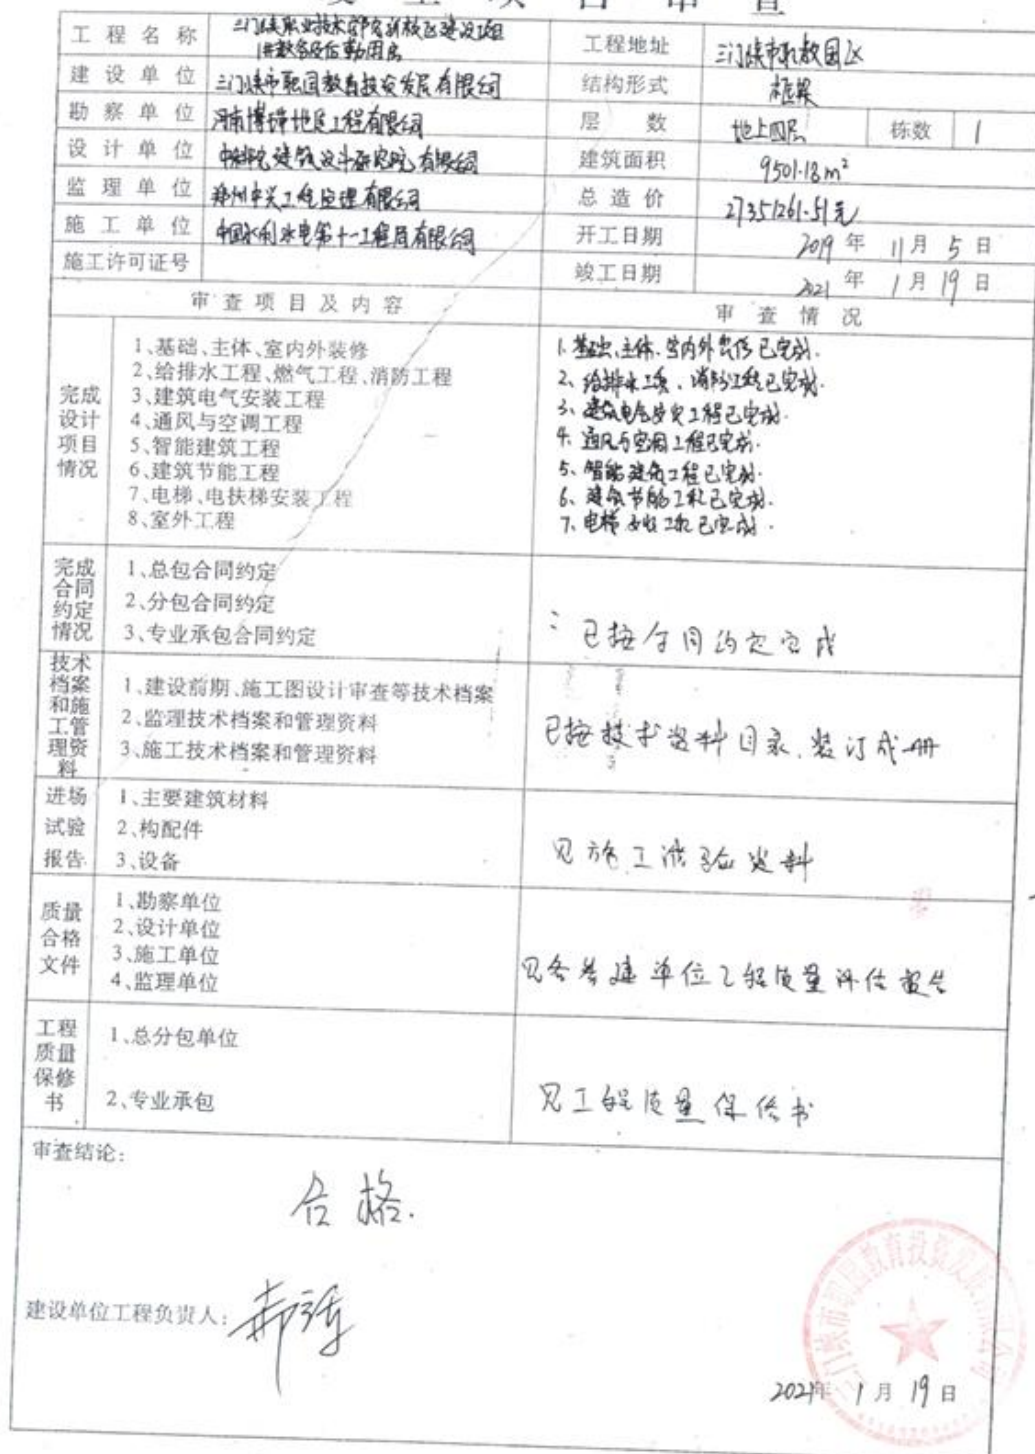 工程名称 三门峡职业技术学院新校区建设项目
1#教学楼及后勤用房
工程地址 三门峡市职教园区
建设单位 三门峡市职园教育投资发展有限公司
结构形式 框架
勘察单位 河南博 地质工程有限公司
层数 地上四层 栋数 1
设计单位 建筑设计研究院有限公司
建筑面积 9501.18m²
监理单位 郑州中兴工程监理有限公司
总造价 27351261.51元
施工单位 中国水利水电第十一工程局有限公司
开工日期 2019年11月5日
施工许可证号
竣工日期 2021年1月19日
审查项目及内容 审查情况
完成设计项目情况
1、基础、主体、室内外装修
2、给排水工程、燃气工程、消防工程
3、建筑电气安装工程
4、通风与空调工程
5、智能建筑工程
6、建筑节能工程
7、电梯、电扶梯安装工程
8、室外工程
1、基础、主体、室内外装修已完成.
2、给排水工程、消防工程已完成.
3、建筑电气安装工程已完成.
4、通风与空调工程已完成.
5、智能建筑工程已完成.
6、建筑节能工程已完成.
7、电梯安装工程已完成.
完成合同约定情况
1、总包合同约定
2、分包合同约定
3、专业承包合同约定
已按合同约定完成
技术档案和施工管理资料
1、建设前期、施工图设计审查等技术档案
2、监理技术档案和管理资料
3、施工技术档案和管理资料
已按技术资料目录、装订成册
进场试验报告
1、主要建筑材料
2、构配件
3、设备
见施工试验资料
质量合格文件
1、勘察单位
2、设计单位
3、施工单位
4、监理单位
见各参建单位工程质量评估报告
工程质量保修书
1、总分包单位
2、专业承包
见工程质量保修书
审查结论:
合格.
建设单位工程负责人:
三门峡市职园教育投资发展有限公司
2021年1月19日